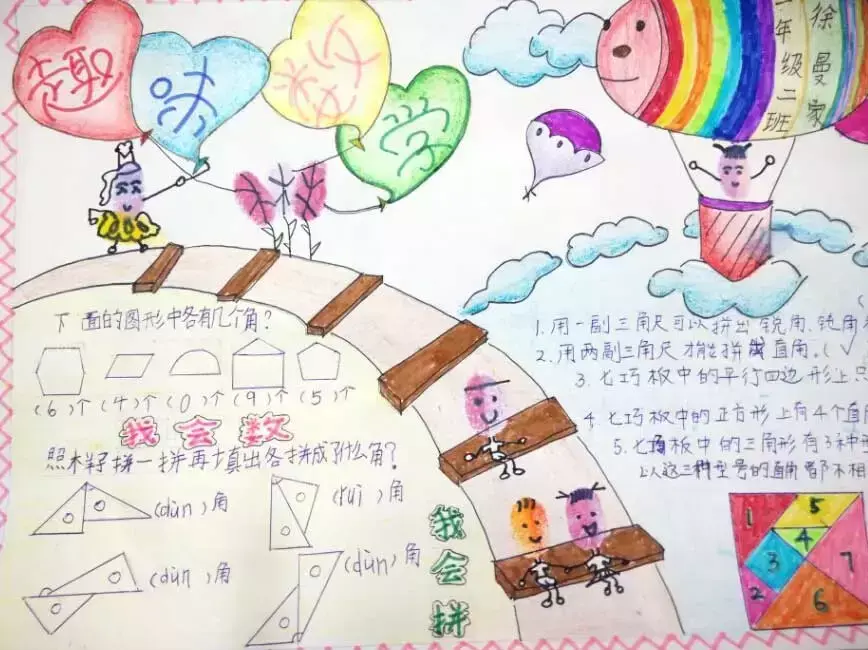 趣味数学
徐曼家
一年级二班
下面的图形中各有几个角?
(6)个 (4)个 (0)个 (9)个 (5)个
我会数
照木羊子拼一拼再填出各拼成了什么角?
(dùn)角 (ruì)角
(dùn)角 (dùn)角
我会拼
1.用一副三角尺可以拼出锐角、钝角
2.用两副三角尺才能拼成直角。(√
3.七巧板中的平行四边形上只
4.七巧板中的正方形上有4个直角
5.七巧板中的三角形有3种
以这三种型号的直角都不相
1 5 4 3 7 2 6